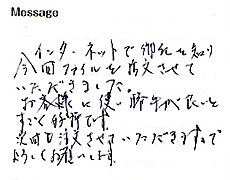 Message
インターネットで御社を知り
今回ファイルを注文させて
いただきました。
お客様に使い勝手が良いと
すごく好評です。
次回も注文させていただきますので
よろしくお願いします。